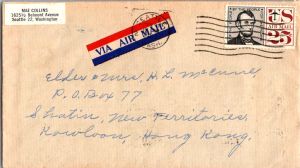 MAE COLLINS
1625½ Belmont Avenue
Seattle 22, Washington
VIA AIR MAIL
BY THE PEOPLE
US
AIR MAIL
25
Elder & Mrs. H. L. McCune,
P.O. Box 77
Shatin, New Territories,
Kowloon, Hong Kong.